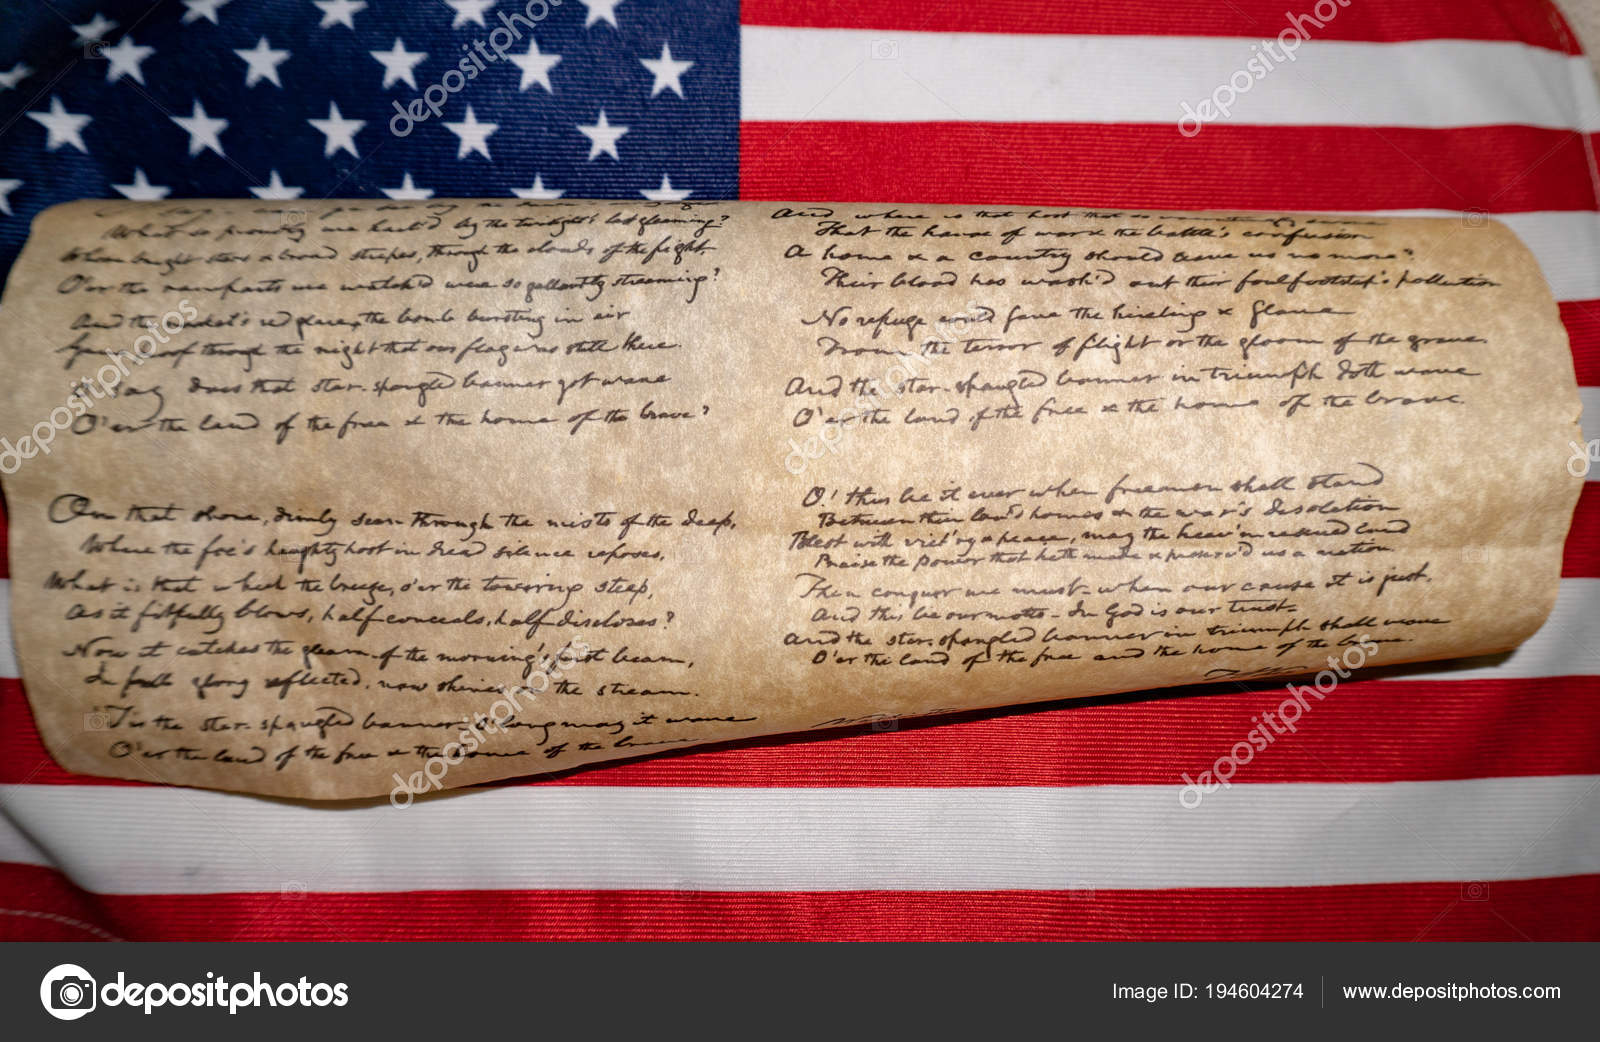 What so proudly we hail'd by the twilight's last gleaming?
Whose bright stars & broad stripes, through the clouds of the fight,
O'er the ramparts we watch'd were so gallantly streaming?
And the rocket's red glare, the bomb bursting in air
Gave proof through the night that our flag was still there.
O say does that star-spangled banner yet wave
O'er the land of the free & the home of the brave?
On that shore, dimly seen through the mists of the deep,
Where the foe's haughty host in dread silence reposes,
What is that which the breeze, o'er the towering steep,
As it fitfully blows, half conceals, half discloses?
Now it catches the gleam of the morning's first beam,
In full glory reflected, now shines on the stream.
'Tis the star-spangled banner - O! long may it wave
O'er the land of the free & the home of the brave
And where is that host that so vauntingly
That the havoc of war & the battle's confusion
A home & a country should leave us no more?
Their blood has wash'd out their foul footstep's pollution
No refuge could save the hireling & slave
From the terror of flight or the gloom of the grave
And the star-spangled banner in triumph doth wave
O'er the land of the free & the home of the brave.
O! thus be it ever when freemen shall stand
Between their lov'd homes & the war's desolation
Blest with vict'ry & peace, may the heav'n rescued land
Praise the power that hath made & preserv'd us a nation.
Then conquer we must - when our cause it is just,
And this be our motto - In God is our trust -
And the star-spangled banner in triumph shall wave
O'er the land of the free and the home of the brave.
depositphotos
Image ID: 194604274
www.depositphotos.com